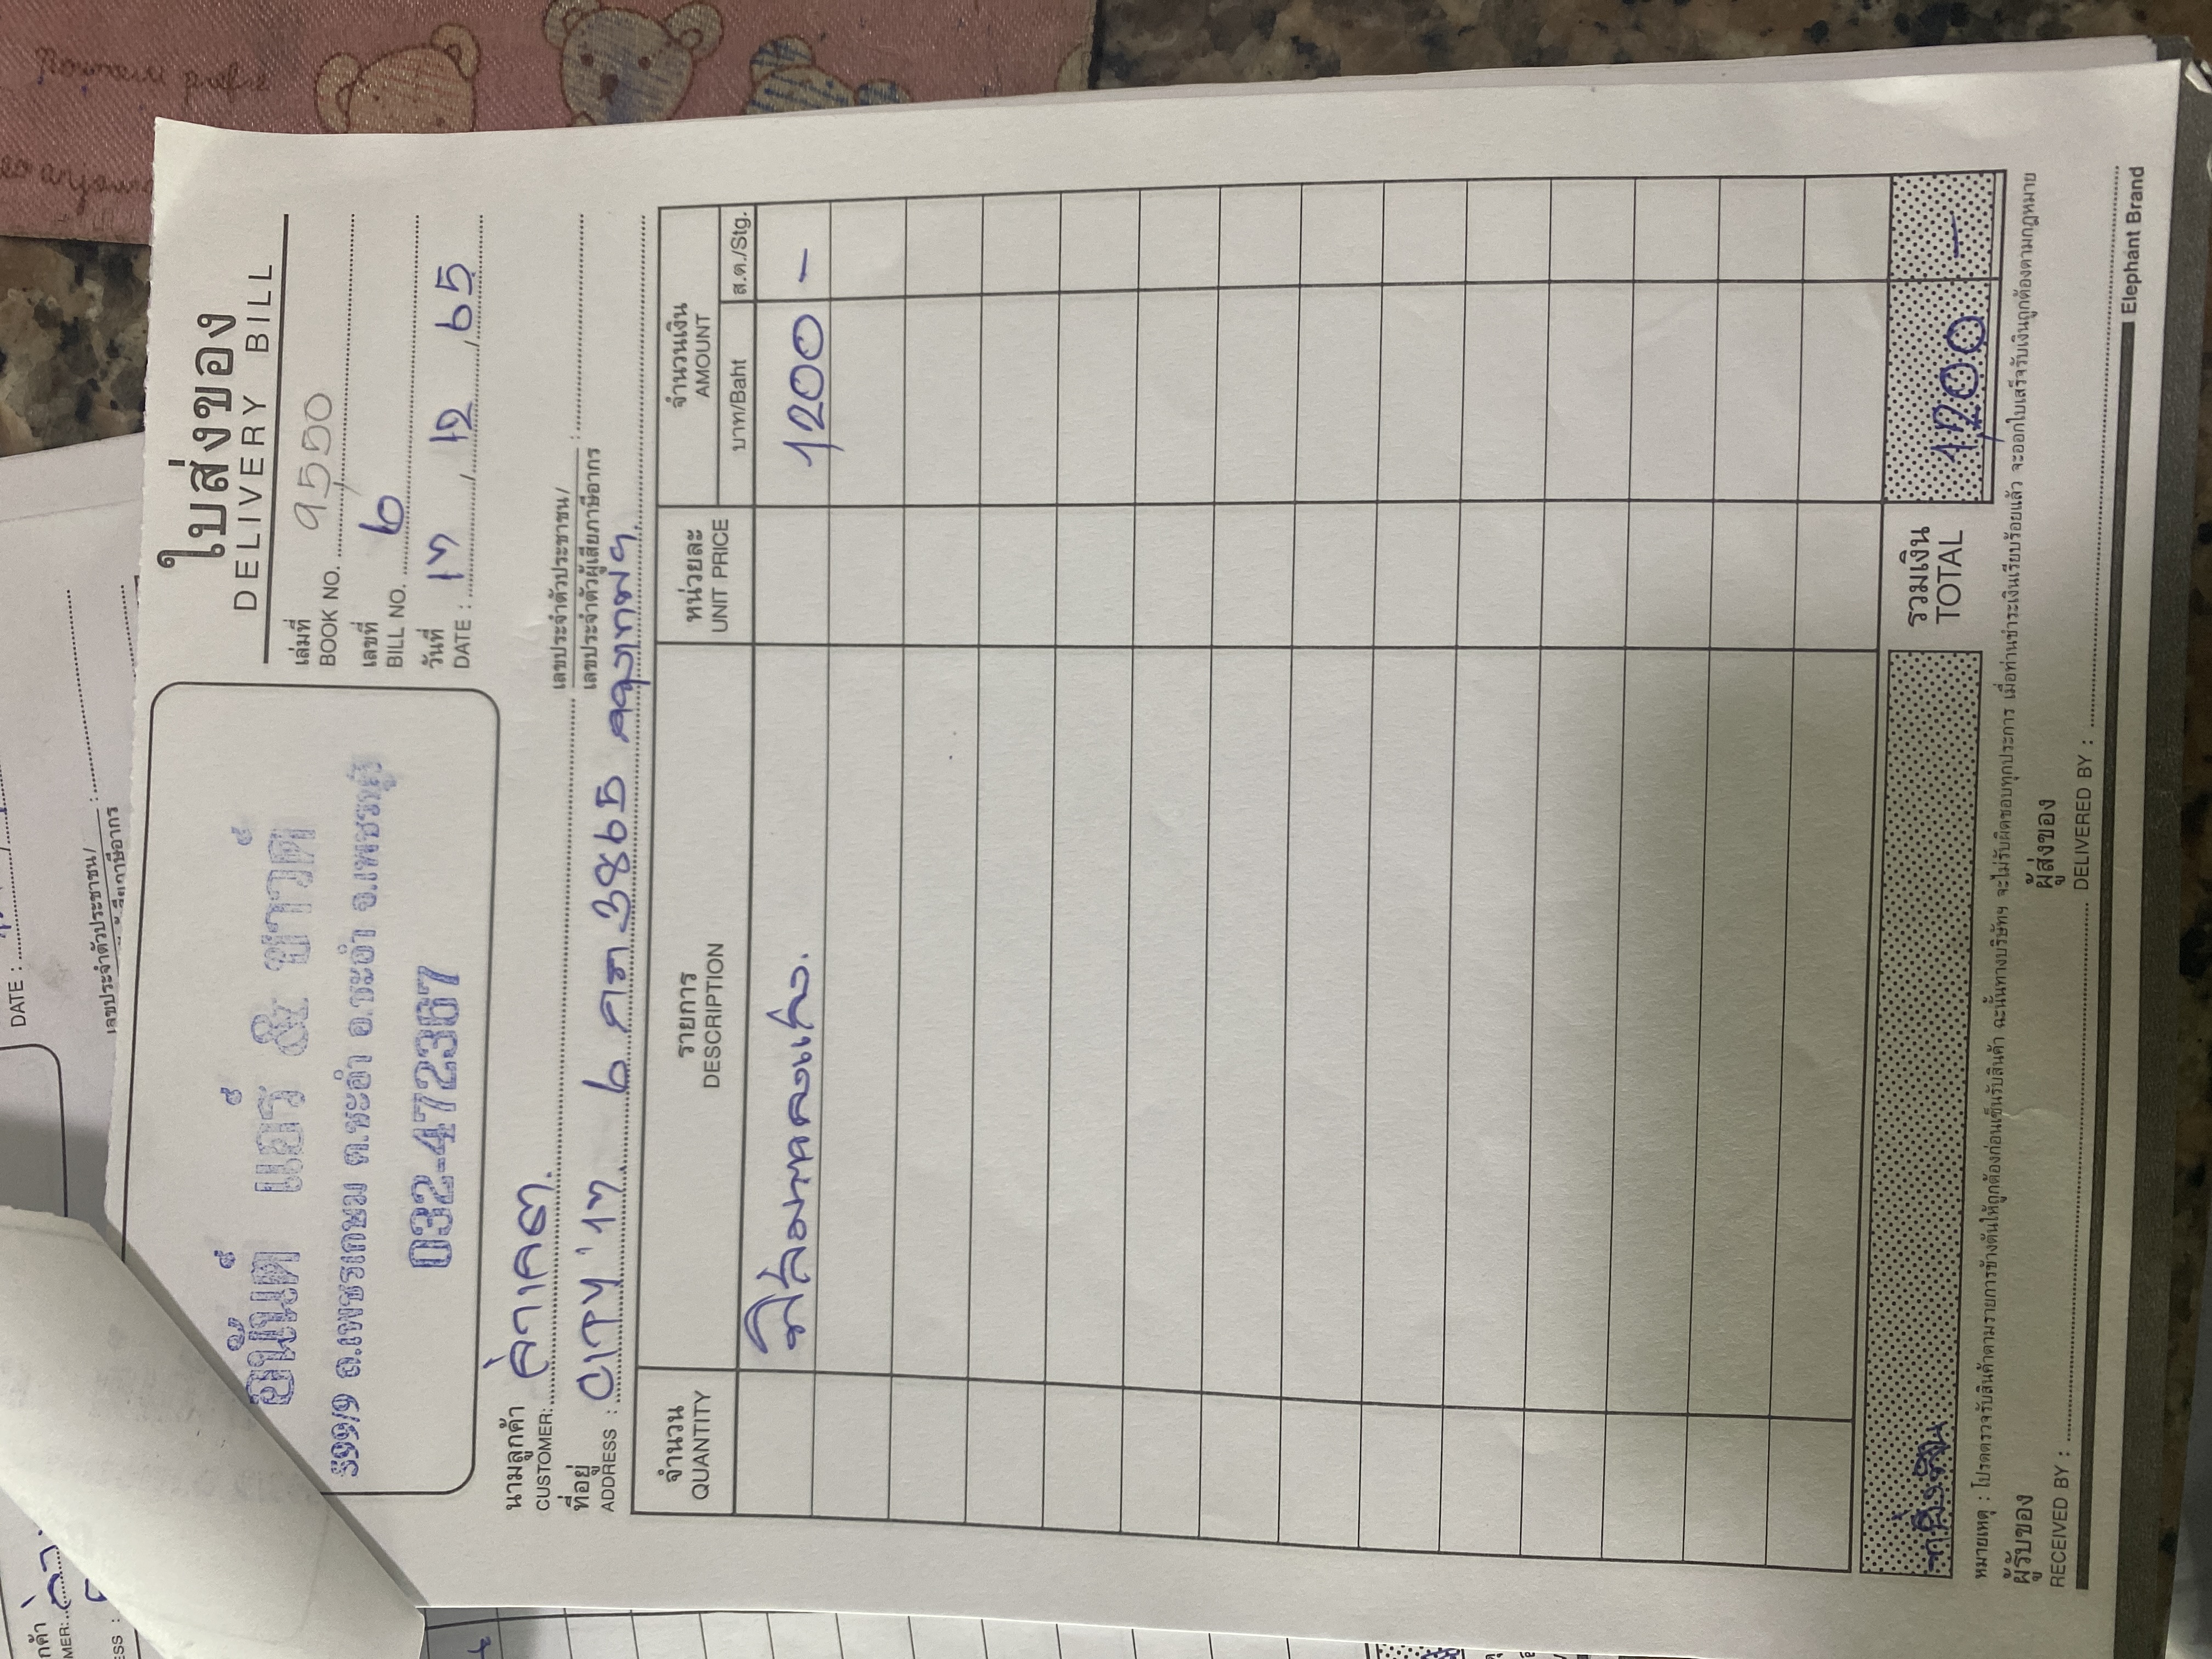 ใบส่งของ
DELIVERY BILL
อนันต์ แอร์ & ซาวด์
599/9 ถ.เพชรเกษม ต.ชะอำ อ.ชะอำ จ.เพชรบุรี
032-472367
เล่มที่
BOOK NO. 9550
เลขที่
BILL NO. 6
วันที่
DATE : 17 / 12 / 65
นามลูกค้า
CUSTOMER:
เลขประจำตัวประชาชน/
เลขประจำตัวผู้เสียภาษีอากร :
ที่อยู่
ADDRESS : CITY '17 6 กก 3865 กรุงเทพฯ
จำนวน
QUANTITY
รายการ
DESCRIPTION
หน่วยละ
UNIT PRICE
จำนวนเงิน
AMOUNT
บาท/Baht ส.ต./Stg.
1200 –
รวมเงิน
TOTAL
1,200 –
หมายเหตุ : โปรดตรวจรับสินค้าตามรายการข้างต้นให้ถูกต้องก่อนเซ็นรับสินค้า ฉะนั้นทางบริษัทฯ จะไม่รับผิดชอบทุกประการ เมื่อท่านชำระเงินเรียบร้อยแล้ว จะออกใบเสร็จรับเงินถูกต้องตามกฎหมาย
ผู้รับของ
RECEIVED BY :
ผู้ส่งของ
DELIVERED BY :
Elephant Brand
DATE :
เลขประจำตัวประชาชน/